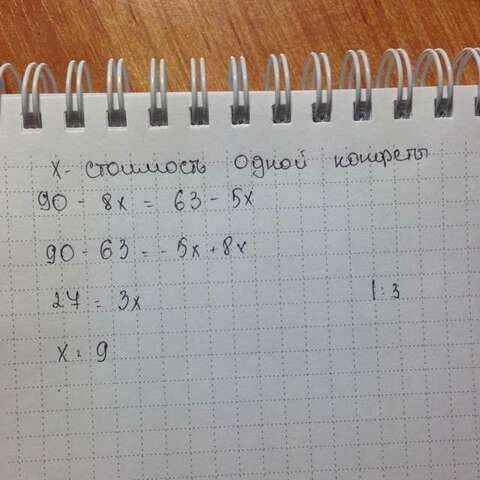 x - стоимость одной конфеты
90 - 8x = 63 - 5x
90 - 63 = - 5x + 8x
27 = 3x |: 3
x = 9